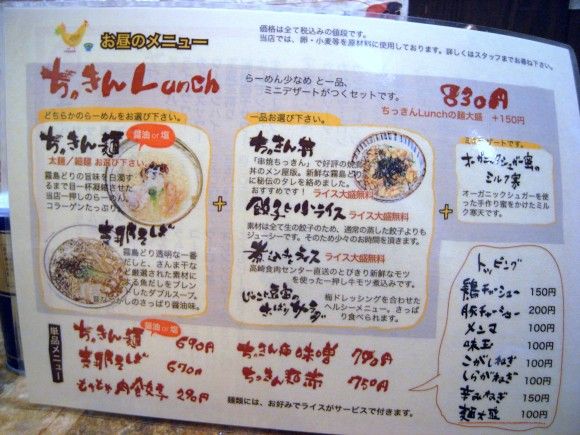 お昼のメニュー
価格は全て税込みの値段です。
当店では、卵・小麦等を原材料に使用しております。詳しくはスタッフまでお尋ね下さい。
ちっきんLunch
らーめん少なめ と一品、
ミニデザートがつくセットです。
830円
ちっきんLunchの麺大盛 +150円
どちらかのらーめんをお選び下さい。
ちっきん麺
醤油 or 塩
太麺/細麺 お選び下さい。
霧島どりの旨味を白濁す
るまで目一杯凝縮させた
当店一押しのらーめん。
コラーゲンたっぷり。
吉那そば
霧島どり透明な一番
だしと、さんま干な
ど厳選された素材に
よる魚だしをブレン
ドしたダブルスープ。
昔なつかしのさっぱり醤油味。
+
一品お選び下さい。
ちっきん丼
「串焼ちっきん」で好評の焼鳥
丼のメン屋版。新鮮な霧島どり
に秘伝のタレを絡めました。
おすすめです! ライス大盛無料
餃子と小ライス
ライス大盛無料
素材は全て生の餃子のため、通常の蒸した餃子よりも
ジューシーです。そのため少々のお時間を頂きます。
ライス大盛無料
高崎食肉センター直送のとびきり新鮮なモツ
を使った一押しモツ煮込みです。
梅ドレッシングを合わせた
ヘルシーメニュー。さっぱ
り食べられます。
+
ミニデザートです。
オーガニックシュガー蜜の
ミルク寒
オーガニックシュガーを使
った手作り蜜をかけたミル
ク寒天です。
トッピング
鶏チャーシュー 150円
豚チャーシュー 200円
メンマ 100円
味玉 100円
こがしねぎ 100円
しらがねぎ 100円
辛みねぎ 150円
麺大盛 100円
単品メニュー
ちっきん麺 醤油 or 塩 690円
吉那そば 670円
もりもり肉食餃子 290円
ちっきん麺味噌 780円
ちっきん麺赤 750円
麺類には、お好みでライスがサービスで付きます。